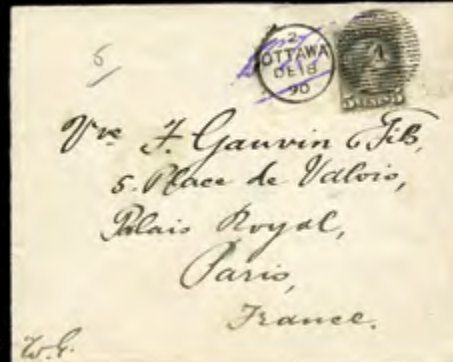 5
2
OTTAWA
DE 18
90
1
5 CENTS 5
Vve F. Gauvin & Fils,
5. Place de Valois,
Palais Royal,
Paris,
France.
W.G.